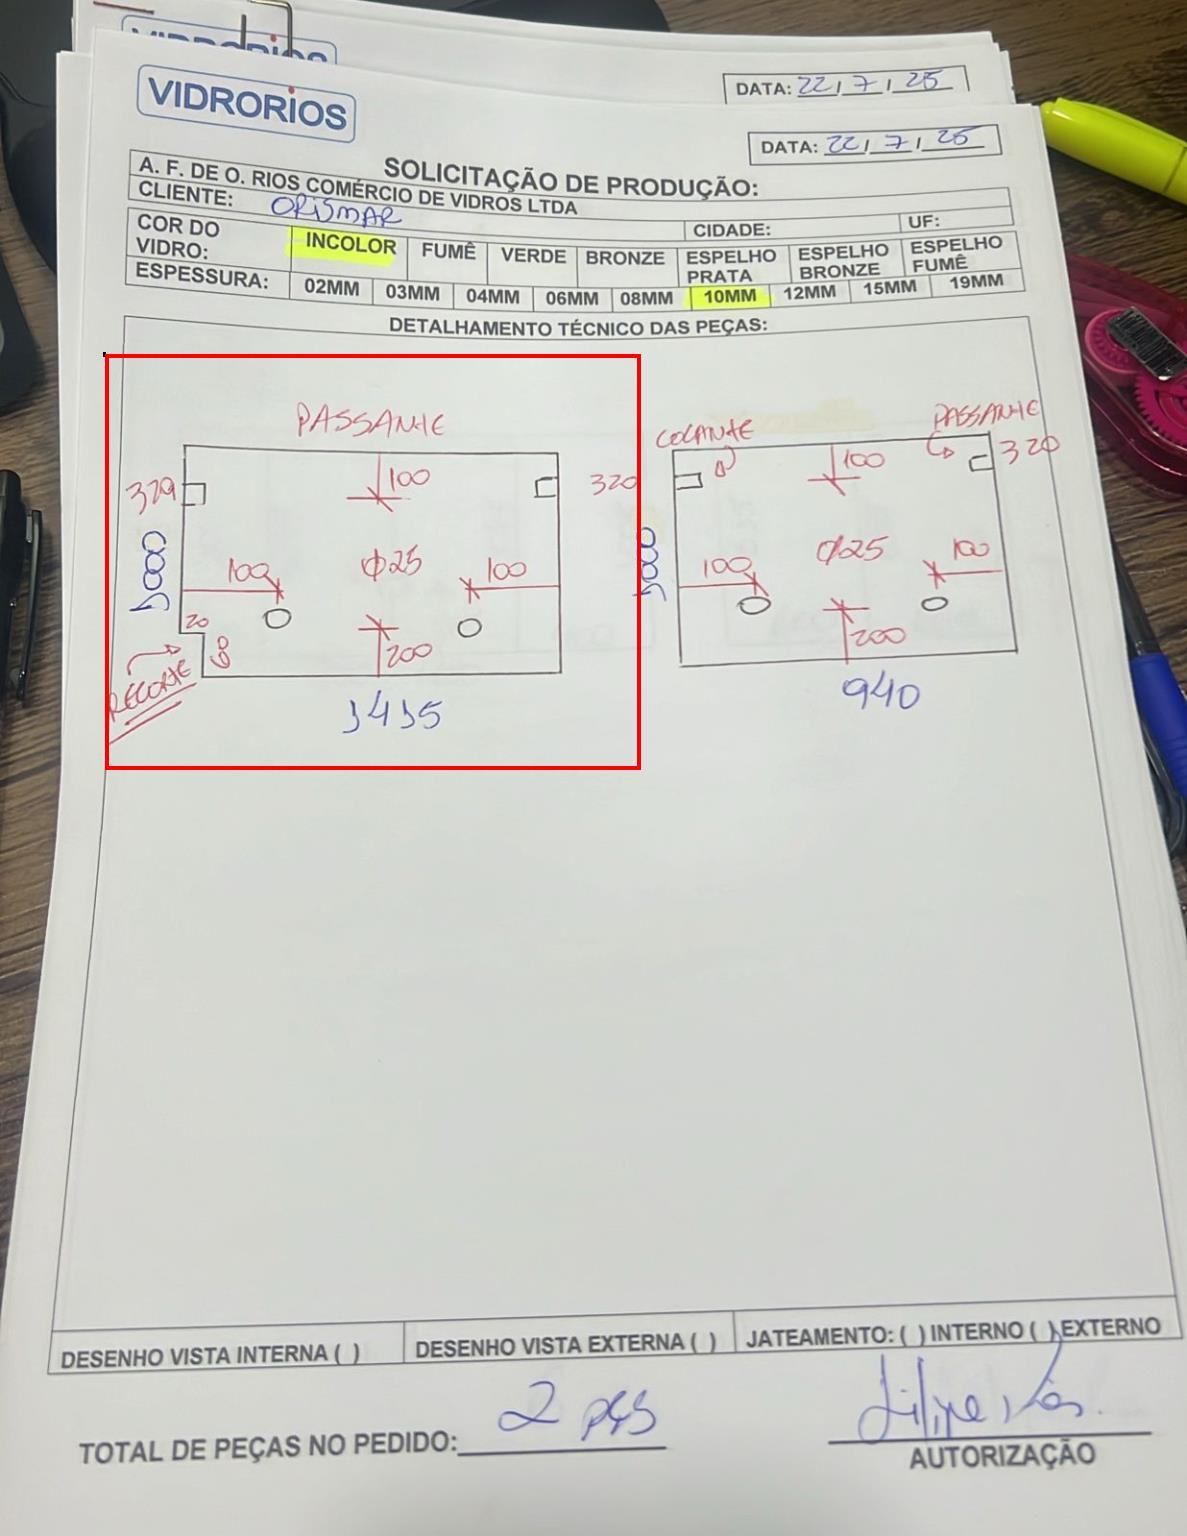 VIDRORIOS
DATA: 22/7/25
VIDRORIOS
DATA: 22/7/25
SOLICITAÇÃO DE PRODUÇÃO:
A. F. DE O. RIOS COMÉRCIO DE VIDROS LTDA
CLIENTE: ORISMAR CIDADE: UF:
COR DO VIDRO: INCOLOR FUMÊ VERDE BRONZE ESPELHO PRATA ESPELHO BRONZE ESPELHO FUMÊ
ESPESSURA: 02MM 03MM 04MM 06MM 08MM 10MM 12MM 15MM 19MM
DETALHAMENTO TÉCNICO DAS PEÇAS:
PASSANTE
320 100 320
1000
100 Ø25 100
20
60 200
RECORTE
1415
COLANTE PASSANTE
100 320
1000
100 Ø25 100
200
940
DESENHO VISTA INTERNA ( ) DESENHO VISTA EXTERNA ( ) JATEAMENTO: ( ) INTERNO ( ) EXTERNO
TOTAL DE PEÇAS NO PEDIDO: 2 pçs
AUTORIZAÇÃO